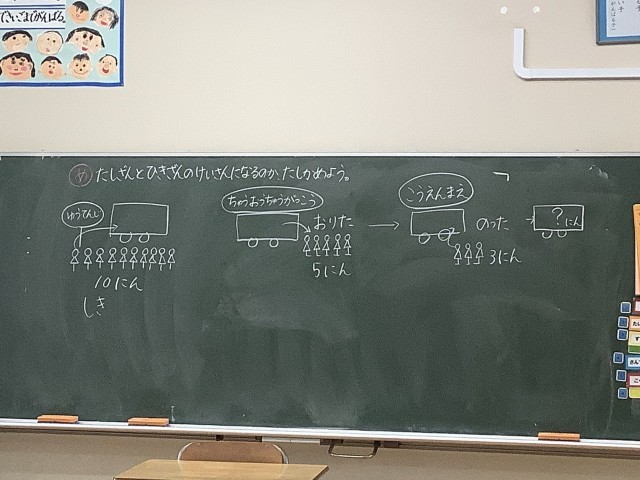 できごまでがんばる。
め たしざんとひきざんのけいさんになるのか、たしかめよう。
ゆうびんし
10にん
しき
ちゅうおうちゅうがっこう
おりた
5にん
こうえんまえ
のった
3にん
?にん